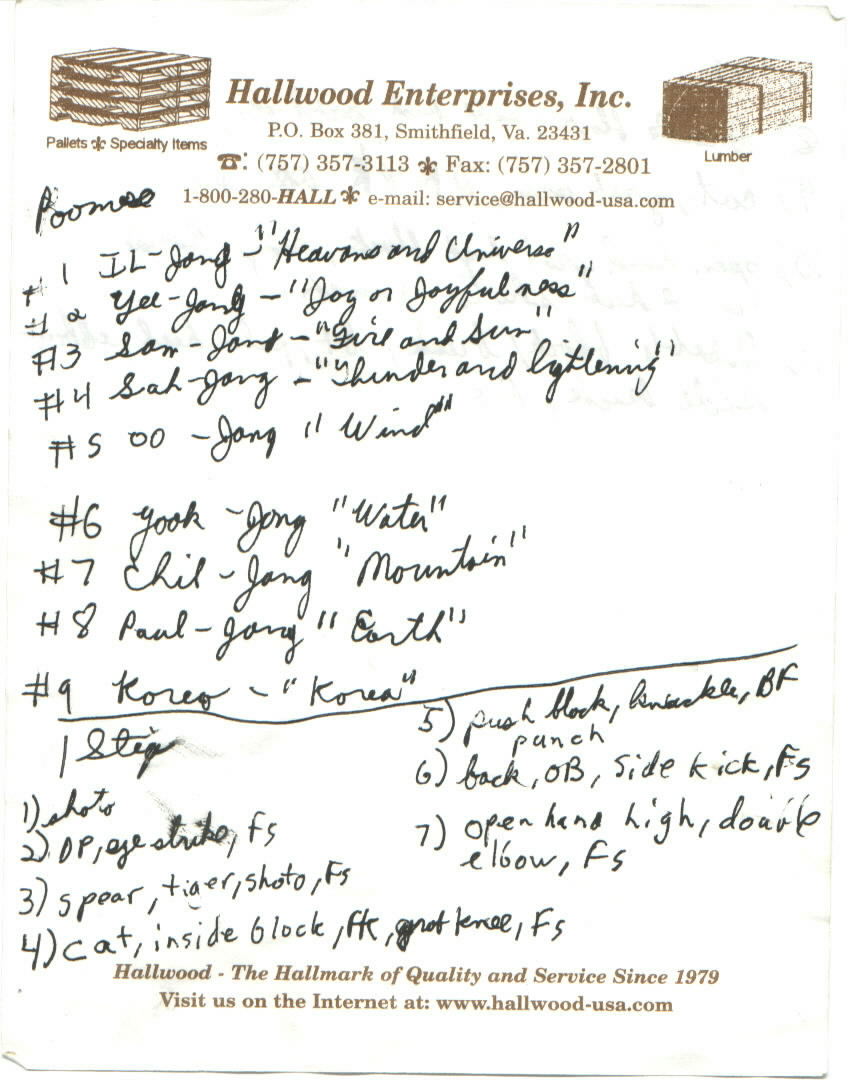 Hallwood Enterprises, Inc.
Pallets Specialty Items
P.O. Box 381, Smithfield, Va. 23431
Lumber
☎: (757) 357-3113 Fax: (757) 357-2801
1-800-280-HALL e-mail: service@hallwood-usa.com
Poomse
# 1 IL-Jang - "Heavans and Universe"
# 2 Yee-Jang - "Joy or Joyfulness"
#3 Sam-Jang - "Fire and Sun"
#4 Sah-Jang - "Thunder and lightening"
#5 OO - Jang "Wind"
#6 Yook - Jang "Water"
#7 Chil - Jang "Mountain"
#8 Paul - Jang "Earth"
#9 Koreo - "Korea"
1 Step
1) shoto
2) DP, eye strike, Fs
3) spear, tiger, shoto, Fs
4) cat, inside block, fk, knee, Fs
5) push block, knuckle, BF
punch
6) back, OB, side kick, Fs
7) open hand high, double
elbow, Fs
Hallwood - The Hallmark of Quality and Service Since 1979
Visit us on the Internet at: www.hallwood-usa.com